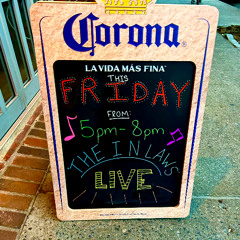 Corona
LA VIDA MÁS FINA
THIS
FRIDAY
FROM:
5pm-8pm
THE IN LAWS
LIVE